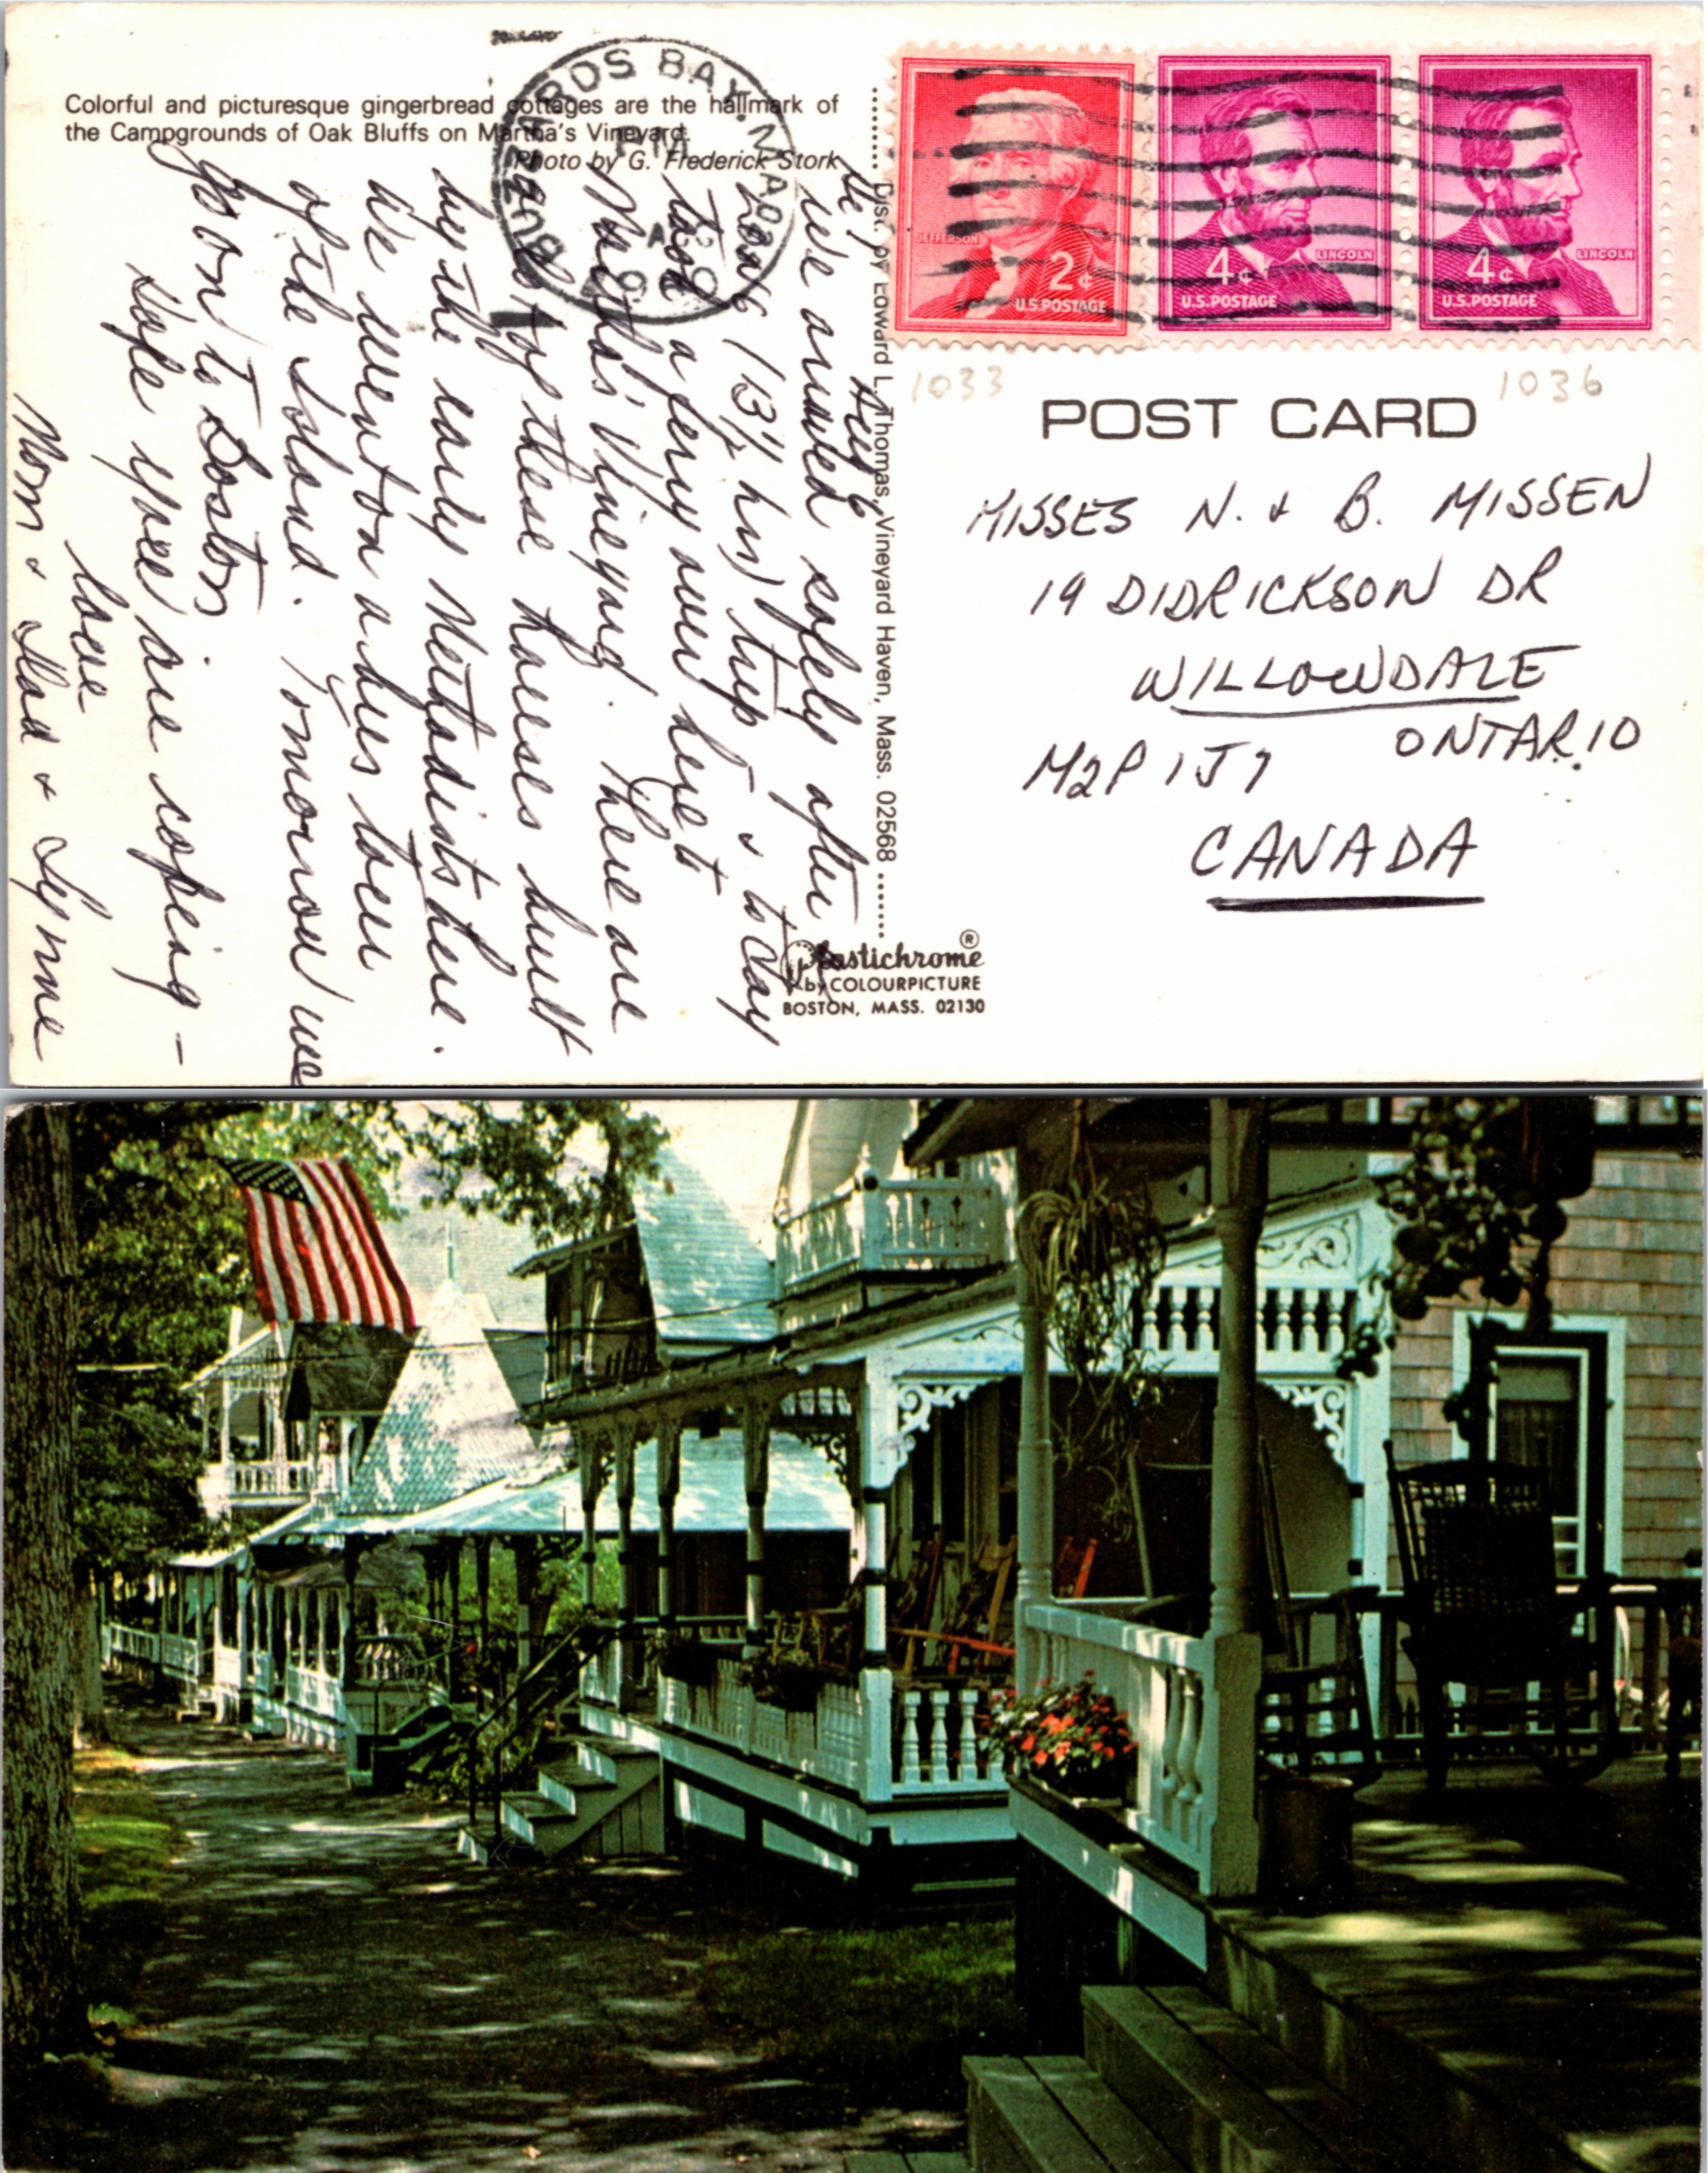 Colorful and picturesque gingerbread cottages are the hallmark of
the Campgrounds of Oak Bluffs on Martha's Vineyard.
Photo by G. Frederick Stork
ARDS BAY, MA
PM
AUG
JEFFERSON
2¢
U.S. POSTAGE
LINCOLN
4¢
U.S. POSTAGE
LINCOLN
4¢
U.S. POSTAGE
1033
1036
POST CARD
MISSES N. & B. MISSEN
19 DIDRICKSON DR
WILLOWDALE
ONTARIO
M2P 1J7
CANADA
Dist. by Edward L. Thomas, Vineyard Haven, Mass. 02568
Plastichrome ®
by COLOURPICTURE
BOSTON, MASS. 02130
Aug 6
We arrived safely after
long (13½ hrs) trip & today
took a ferry over here to
Martha's Vineyard. There are
of these houses built
by the early Methodists here.
We went on a bus tour
of the Island. Tomorrow we
go on to Boston
Hope you are coping –
Love
Mom & Dad & Lynne